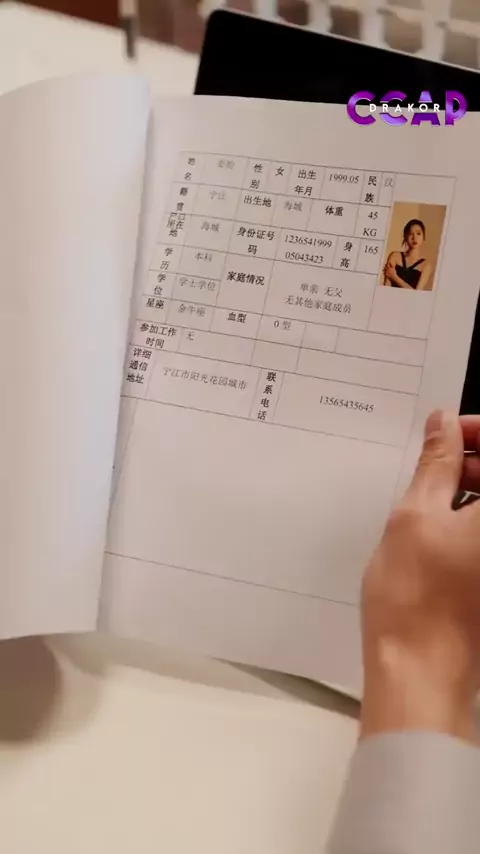 CCAP
DRAKOR
姓名 姜盼 性别 女 出生年月 1999.05 民族 汉
籍贯 宁江 出生地 海城 体重 45 KG
户口所在地 海城 身份证号码 123654199905043423 身高 165
学历 本科 家庭情况 单亲 无父
学位 学士学位 无其他家庭成员
星座 金牛座 血型 O 型
参加工作时间 无
详细通信地址 宁江市阳光花园城市 联系电话 13565435645